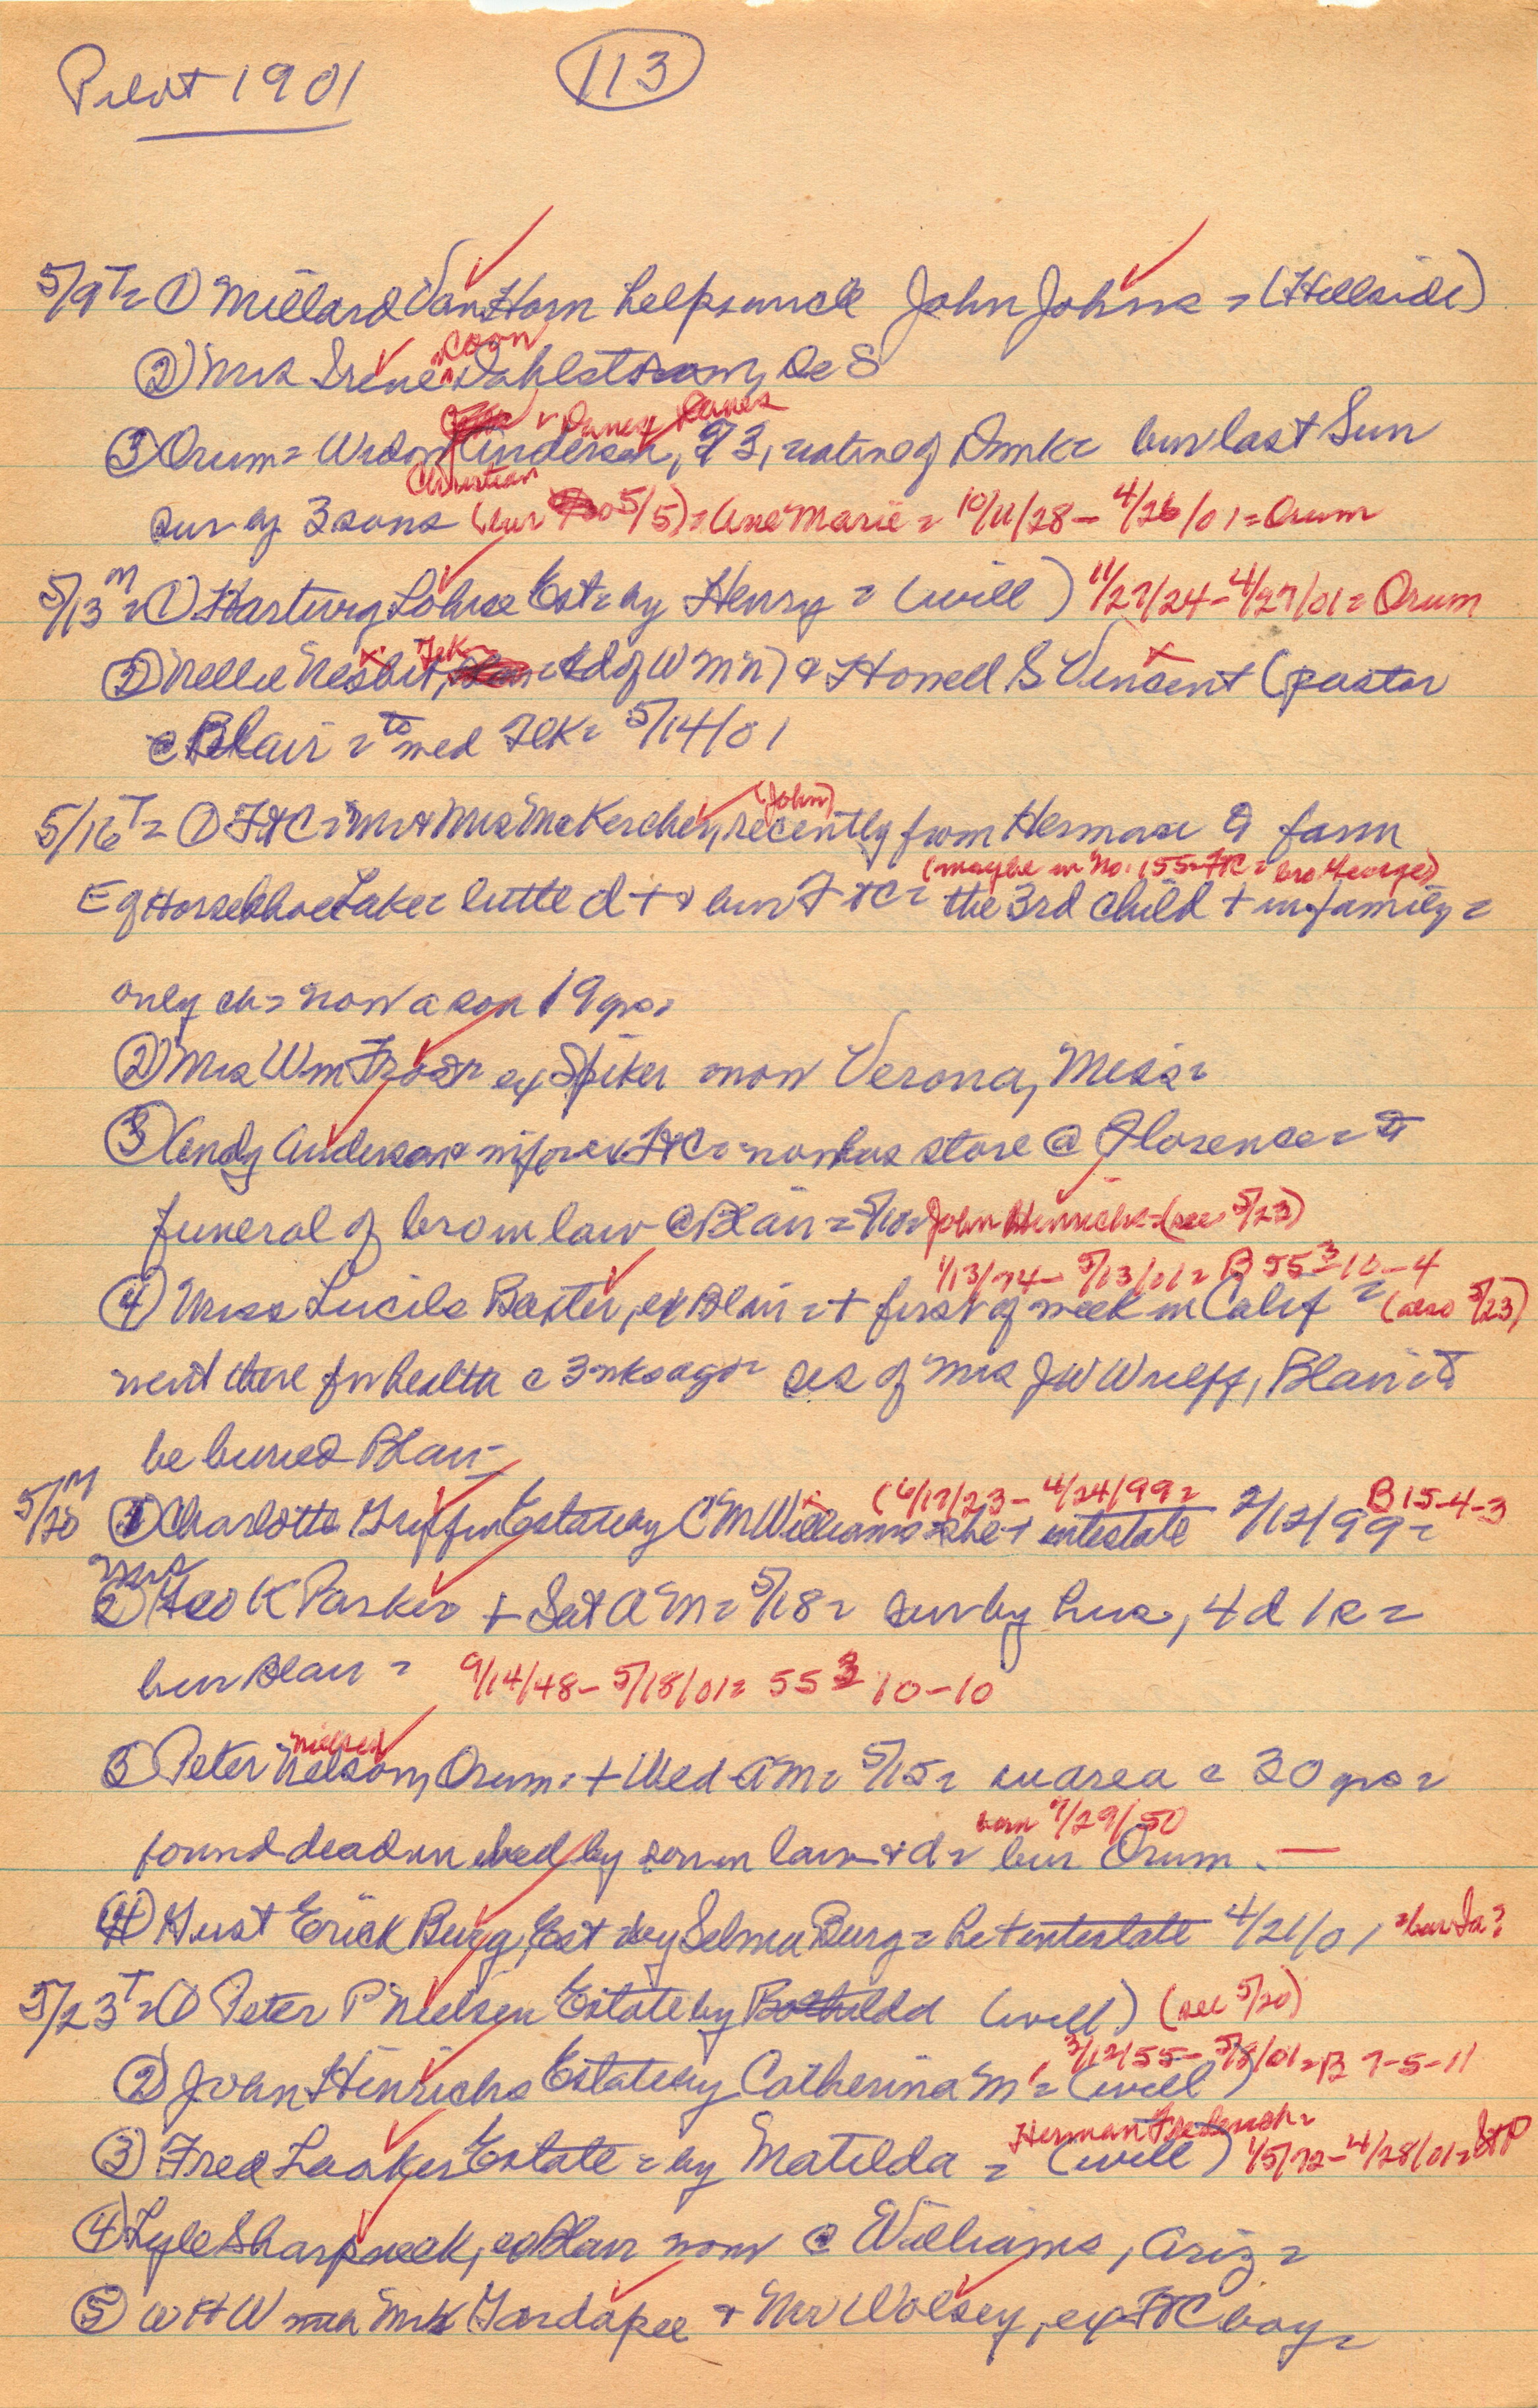 Pilot 1901 113
5/9 T= ① Millard Van Horn helps uncle John Johns = (Hillside)
"Coon"
② Mrs Irene Dahlstrom, De S
James
③ Orum = Widow Anderson, 73, native of Dmk= bur last Sun
Christian
sur by 3 sons (bur 5/5) = Ane Marie = 10/11/28 - 4/26/01 = Orum
5/13 M= ① Hartwig Lohse Est= by Henry = (will) 11/27/24 - 4/27/01 = Orum
Tek
② Nellie Nesbit, d of Wm N) & Howell S Vincent (pastor
@ Blair = to wed Tek= 5/14/01
(John)
5/16 T= ① Ft C = Mr & Mrs McKerchey, recently from Herman & farm
(maybe in No. 155 = Ft C = bro George)
E of Horseshoe Lake= little d + & bur Ft C= the 3rd child + in family =
only ch= now a son 19 yrs=
② Mrs Wm Frost ex Spiker now Verona, Miss=
③ Andy Anderson & wife ex Ft C= now has store @ Florence= @
funeral of bro in law @ Blair = 5/10= John Hinrichs = (see 5/23)
1/13/74 - 5/13/01 = B 55 3 10-4
④ Miss Lucile Baxter, ex Blair = + first of week in Calif = (also 5/23)
went there for health c 3 wks ago = sis of Mrs J W Wulff, Blair = to
be buried Blair=
(6/17/23 - 4/24/99= B 15-4-3
5/20 M ① Charlotte Griffin Estate by C M Williams = she + intestate 2/12/99=
Mrs
② Geo K Parker + Sat AM = 5/18 = sur by hus, 4 d 1 s =
bur Blair = 9/14/48 - 5/18/01 = 55 3 10-10
Nielsen
③ Peter Nelson, Orum = + Wed AM = 5/15 = in area c 30 yrs =
born 7/29/50
found dead in bed by son in law & d = bur Orum. —
④ Gust Erick Burg, Est by Selma Burg = he + intestate 4/21/01 = bur Ia?
5/23 T= ① Peter P Nielsen Estate by Bothilda (will) (see 5/20)
3/12/55 - 5/8/01 = B 7-5-11
② John Hinrichs Estate by Catherina M = (will)
Herman Frederick=
③ Fred Laaker Estate = by Matilda = (will) 1/5/72 - 4/28/01 = St P
④ Lyle Sharpneck, ex Blair now @ Williams, Ariz =
⑤ W H W Mrs Gardapee & Mr Wolsey, ex Ft C boy=